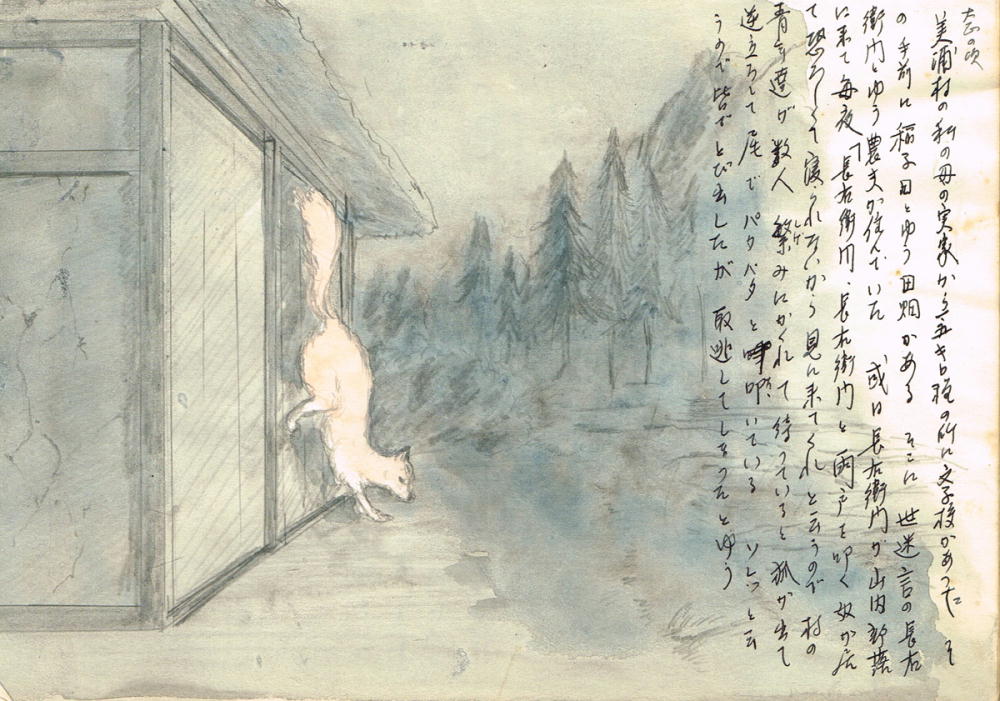 美浦村の私の母の実家から五キロ程の所に文子様があった そ
の手前に稲子田とゆう田畑がある そこに 世迷言の長右
衛門とゆう農夫が住んでいた 或日長右衛門が山内部落
に来て毎夜「長右衛門、長右衛門と雨戸を叩く奴が居
て恐ろしくて寝られないから見に来てくれと云うので 村の
青年達が数人 繁みにかくれて待っていると 狐が出て
逆立ちして尾で パタパタ と 叩いている ソレッと云
うので皆でとび出したが 取逃してしまったとゆう